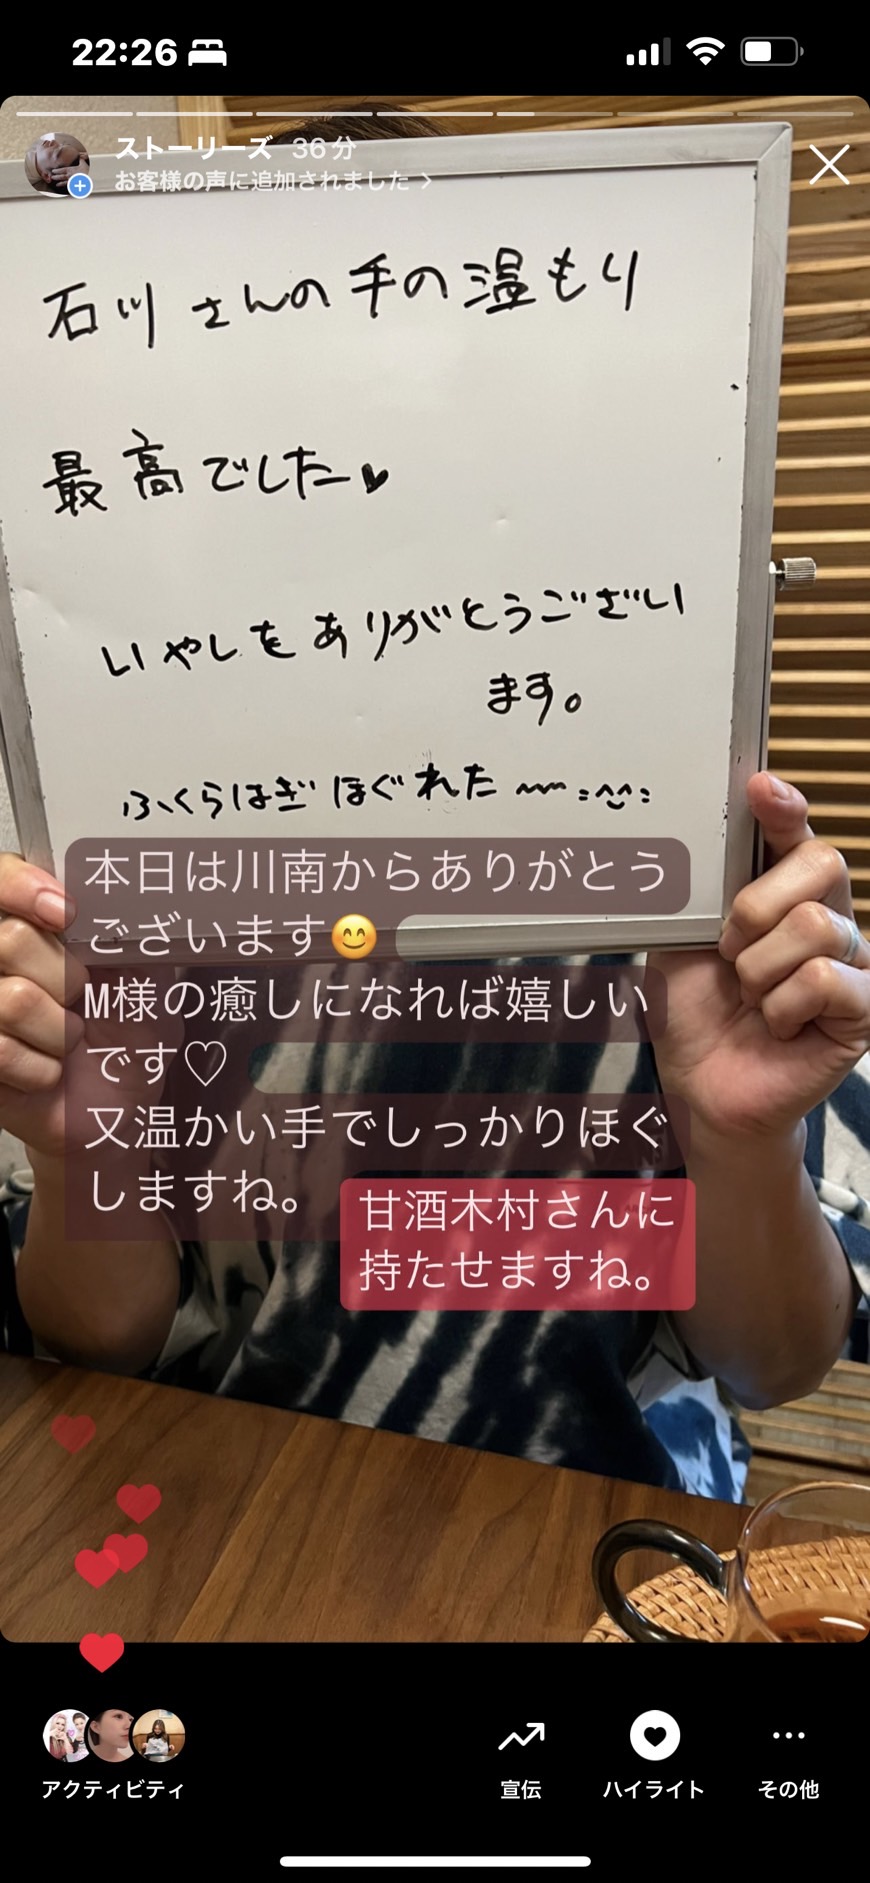 22:26
ストーリーズ 36分
お客様の声に追加されました
石川さんの手の温もり
最高でした♥
いやしをありがとうござい
ます。
ふくらはぎほぐれた〰:^‿^:
本日は川南からありがとう
ございます😊
M様の癒しになれば嬉しい
です♡
又温かい手でしっかりほぐ
しますね。
甘酒木村さんに
持たせますね。
アクティビティ
宣伝
ハイライト
その他